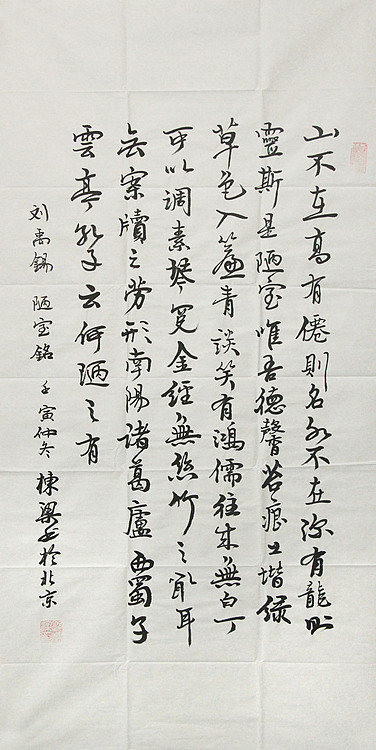 山不在高有僊則名水不在深有龍則
靈斯是陋室唯吾德馨苔痕上堦綠
草色入簾青談笑有鴻儒往來無白丁
可以調素琴閱金經無絲竹之亂耳
無案牘之勞形南陽諸葛廬西蜀子
雲亭孔子云何陋之有
刘禹錫 陋室銘 壬寅仲冬 棟梁书於北京